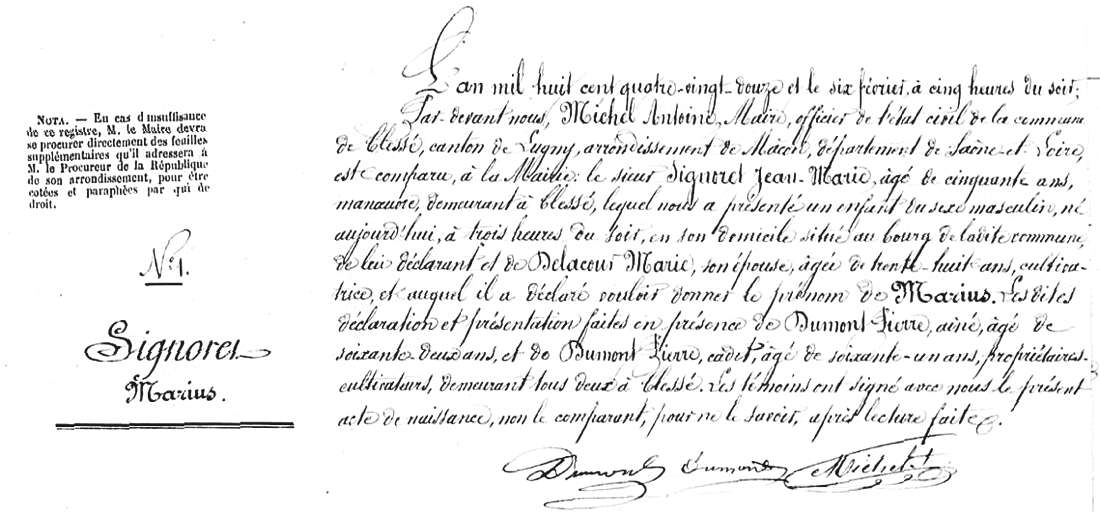 NOTA. — En cas d'insuffisance
de ce registre, M. le Maire devra
se procurer directement des feuilles
supplémentaires qu'il adressera à
M. le Procureur de la République
de son arrondissement, pour être
cotées et paraphées par qui de
droit.
N° 1.
Signoret
Marius.
L'an mil huit cent quatre-vingt-douze et le six février, à cinq heures du soir;
Par devant nous, Michel Antoine, Maire, officier de l'état civil de la commune
de Clessé, canton de Lugny, arrondissement de Mâcon, département de Saône-et-Loire,
est comparu, à la Mairie: le sieur Signoret Jean-Marie, âgé de cinquante ans,
manœuvre, demeurant à Clessé, lequel nous a présenté un enfant du sexe masculin, né
aujourd'hui, à trois heures du soir, en son domicile situé au bourg de ladite commune,
de lui déclarant et de Delacour Marie, son épouse, âgée de trente-huit ans, cultiva-
trice, et auquel il a déclaré vouloir donner le prénom de Marius. Les dites
déclaration et présentation faites en présence de Dumont Pierre, aîné, âgé de
soixante-deux ans, et de Dumont Pierre, cadet, âgé de soixante-un ans, propriétaires-
cultivateurs, demeurant tous deux à Clessé. Les témoins ont signé avec nous le présent
acte de naissance, non le comparant, pour ne le savoir, après lecture faite.
Dumont Dumont Michel